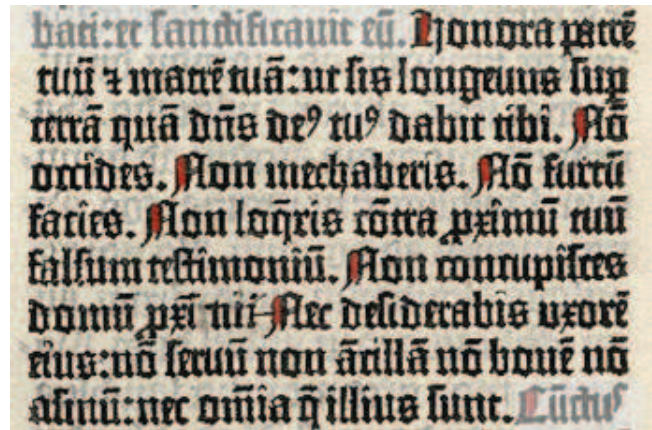 bati: et sanctificavit eū. Honora patrē
tuū ⁊ matrē tuā: ut sis longeuus sup
terrā quā dn̄s deꝰ tuꝰ dabit tibi. Nō
occides. Non mechaberis. Nō furtū
facies. Non loq̄ris cōtra ꝓximū tuū
falsum testimoniū. Non concupisces
domū ꝓxī tui Nec desiderabis uxorē
eius: nō seruū non ācillā nō bouē nō
asinū: nec om̄ia q̄ illius sunt. Cūctus